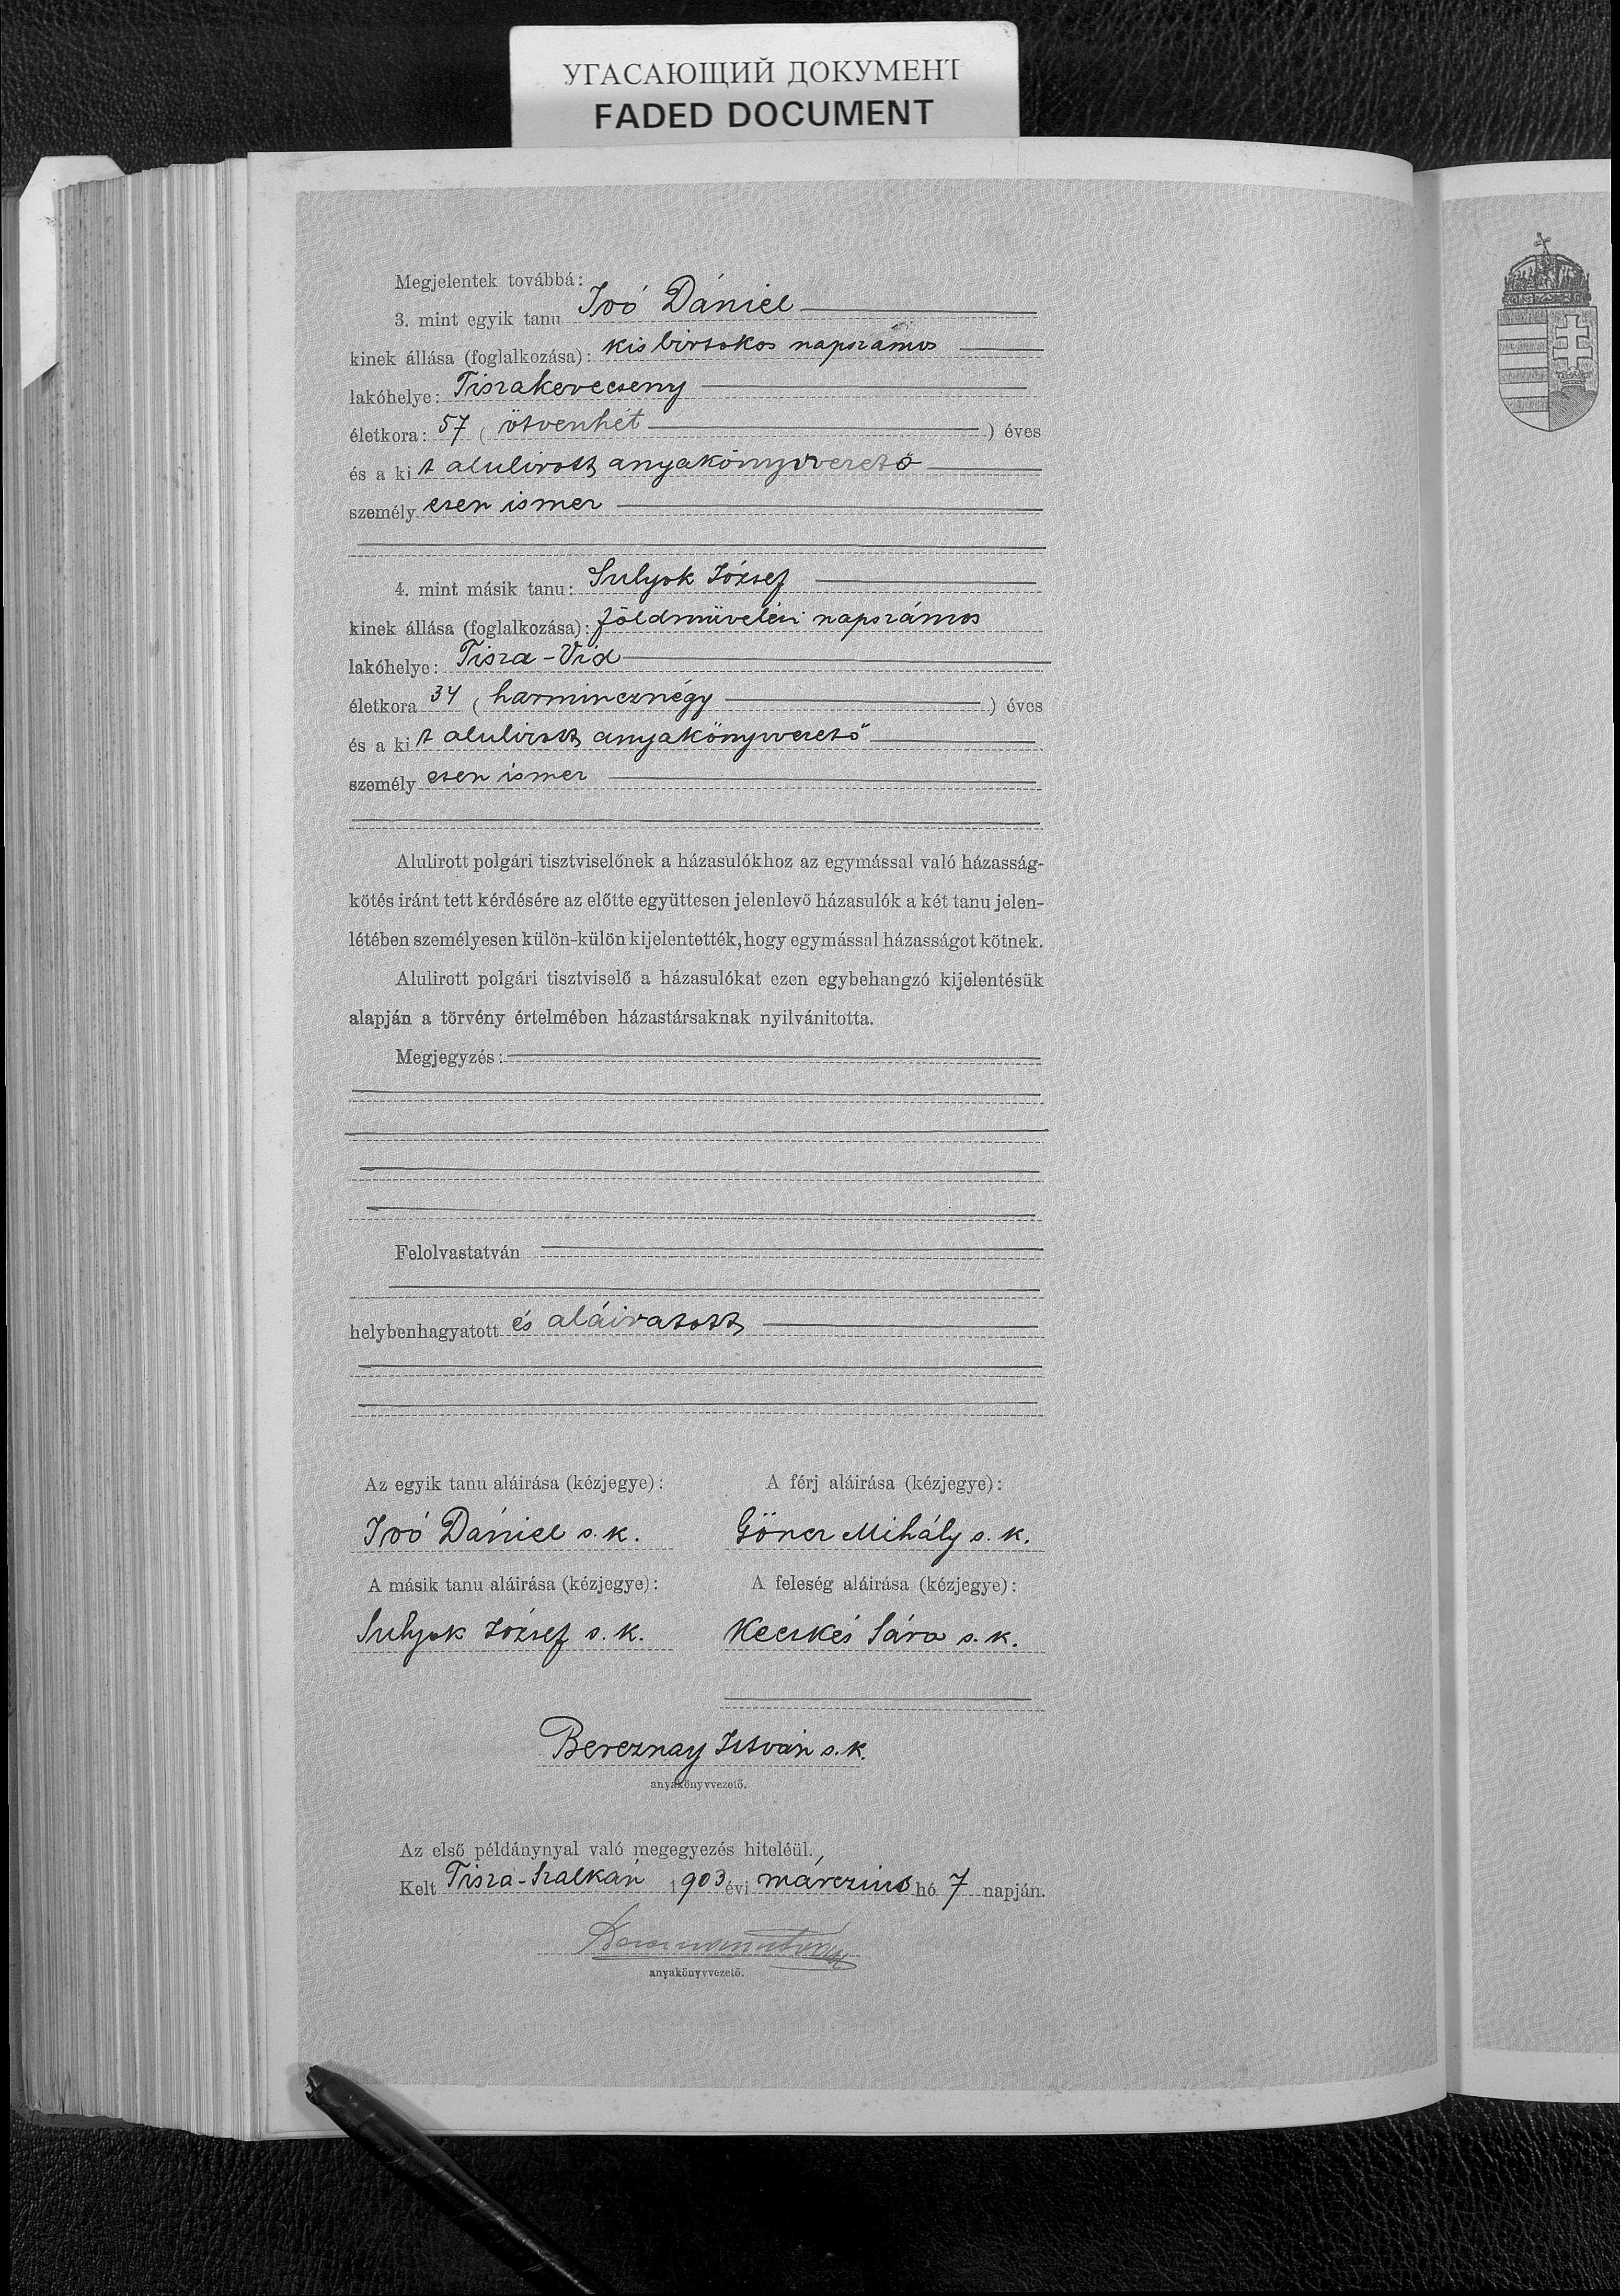 УГАСАЮЩИЙ ДОКУМЕНТ
FADED DOCUMENT
Megjelentek továbbá:
3. mint egyik tanu Ivó Dániel
kinek állása (foglalkozása): kisbirtokos napszámos
lakóhelye: Tiszakerecseny
életkora: 57 (ötvenhét) éves
és a kit alulirott anyakönyvvezető
személyesen ismer
4. mint másik tanu: Sulyok József
kinek állása (foglalkozása): földmüvelési napszámos
lakóhelye: Tisza-Vid
életkora 34 (harmincznégy) éves
és a kit alulirott anyakönyvvezető
személyesen ismer
Alulirott polgári tisztviselőnek a házasulókhoz az egymással való házasság-
kötés iránt tett kérdésére az előtte együttesen jelenlevő házasulók a két tanu jelen-
létében személyesen külön-külön kijelentették, hogy egymással házasságot kötnek.
Alulirott polgári tisztviselő a házasulókat ezen egybehangzó kijelentésük
alapján a törvény értelmében házastársaknak nyilvánitotta.
Megjegyzés:
Felolvastatván
helybenhagyatott és aláiratott
Az egyik tanu aláirása (kézjegye): A férj aláirása (kézjegye):
Ivó Dániel s. k. Göncz Mihály s. k.
A másik tanu aláirása (kézjegye): A feleség aláirása (kézjegye):
Sulyok József s. k. Kecskés Sára s. k.
Bereznay István s. k.
anyakönyvvezető.
Az első példánynyal való megegyezés hiteléül.
Kelt Tisza-Szalkán 1903 évi márczius hó 7 napján.
anyakönyvvezető.